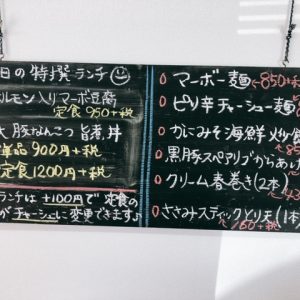 日の特撰ランチ
ルモン入りマーボ豆腐
定食 950+税
豚なんこつ旨煮丼
単品900円+税
定食1200円+税
ランチは+100円で定食の
がチャーシューに変更できます♪
マーボー麺 850+税
ピリ辛チャーシュー麺
かにみそ海鮮炒飯
黒豚スペアリブからあげ
クリーム春巻き(2本)
ささみスティックとり天(1本)
150+税